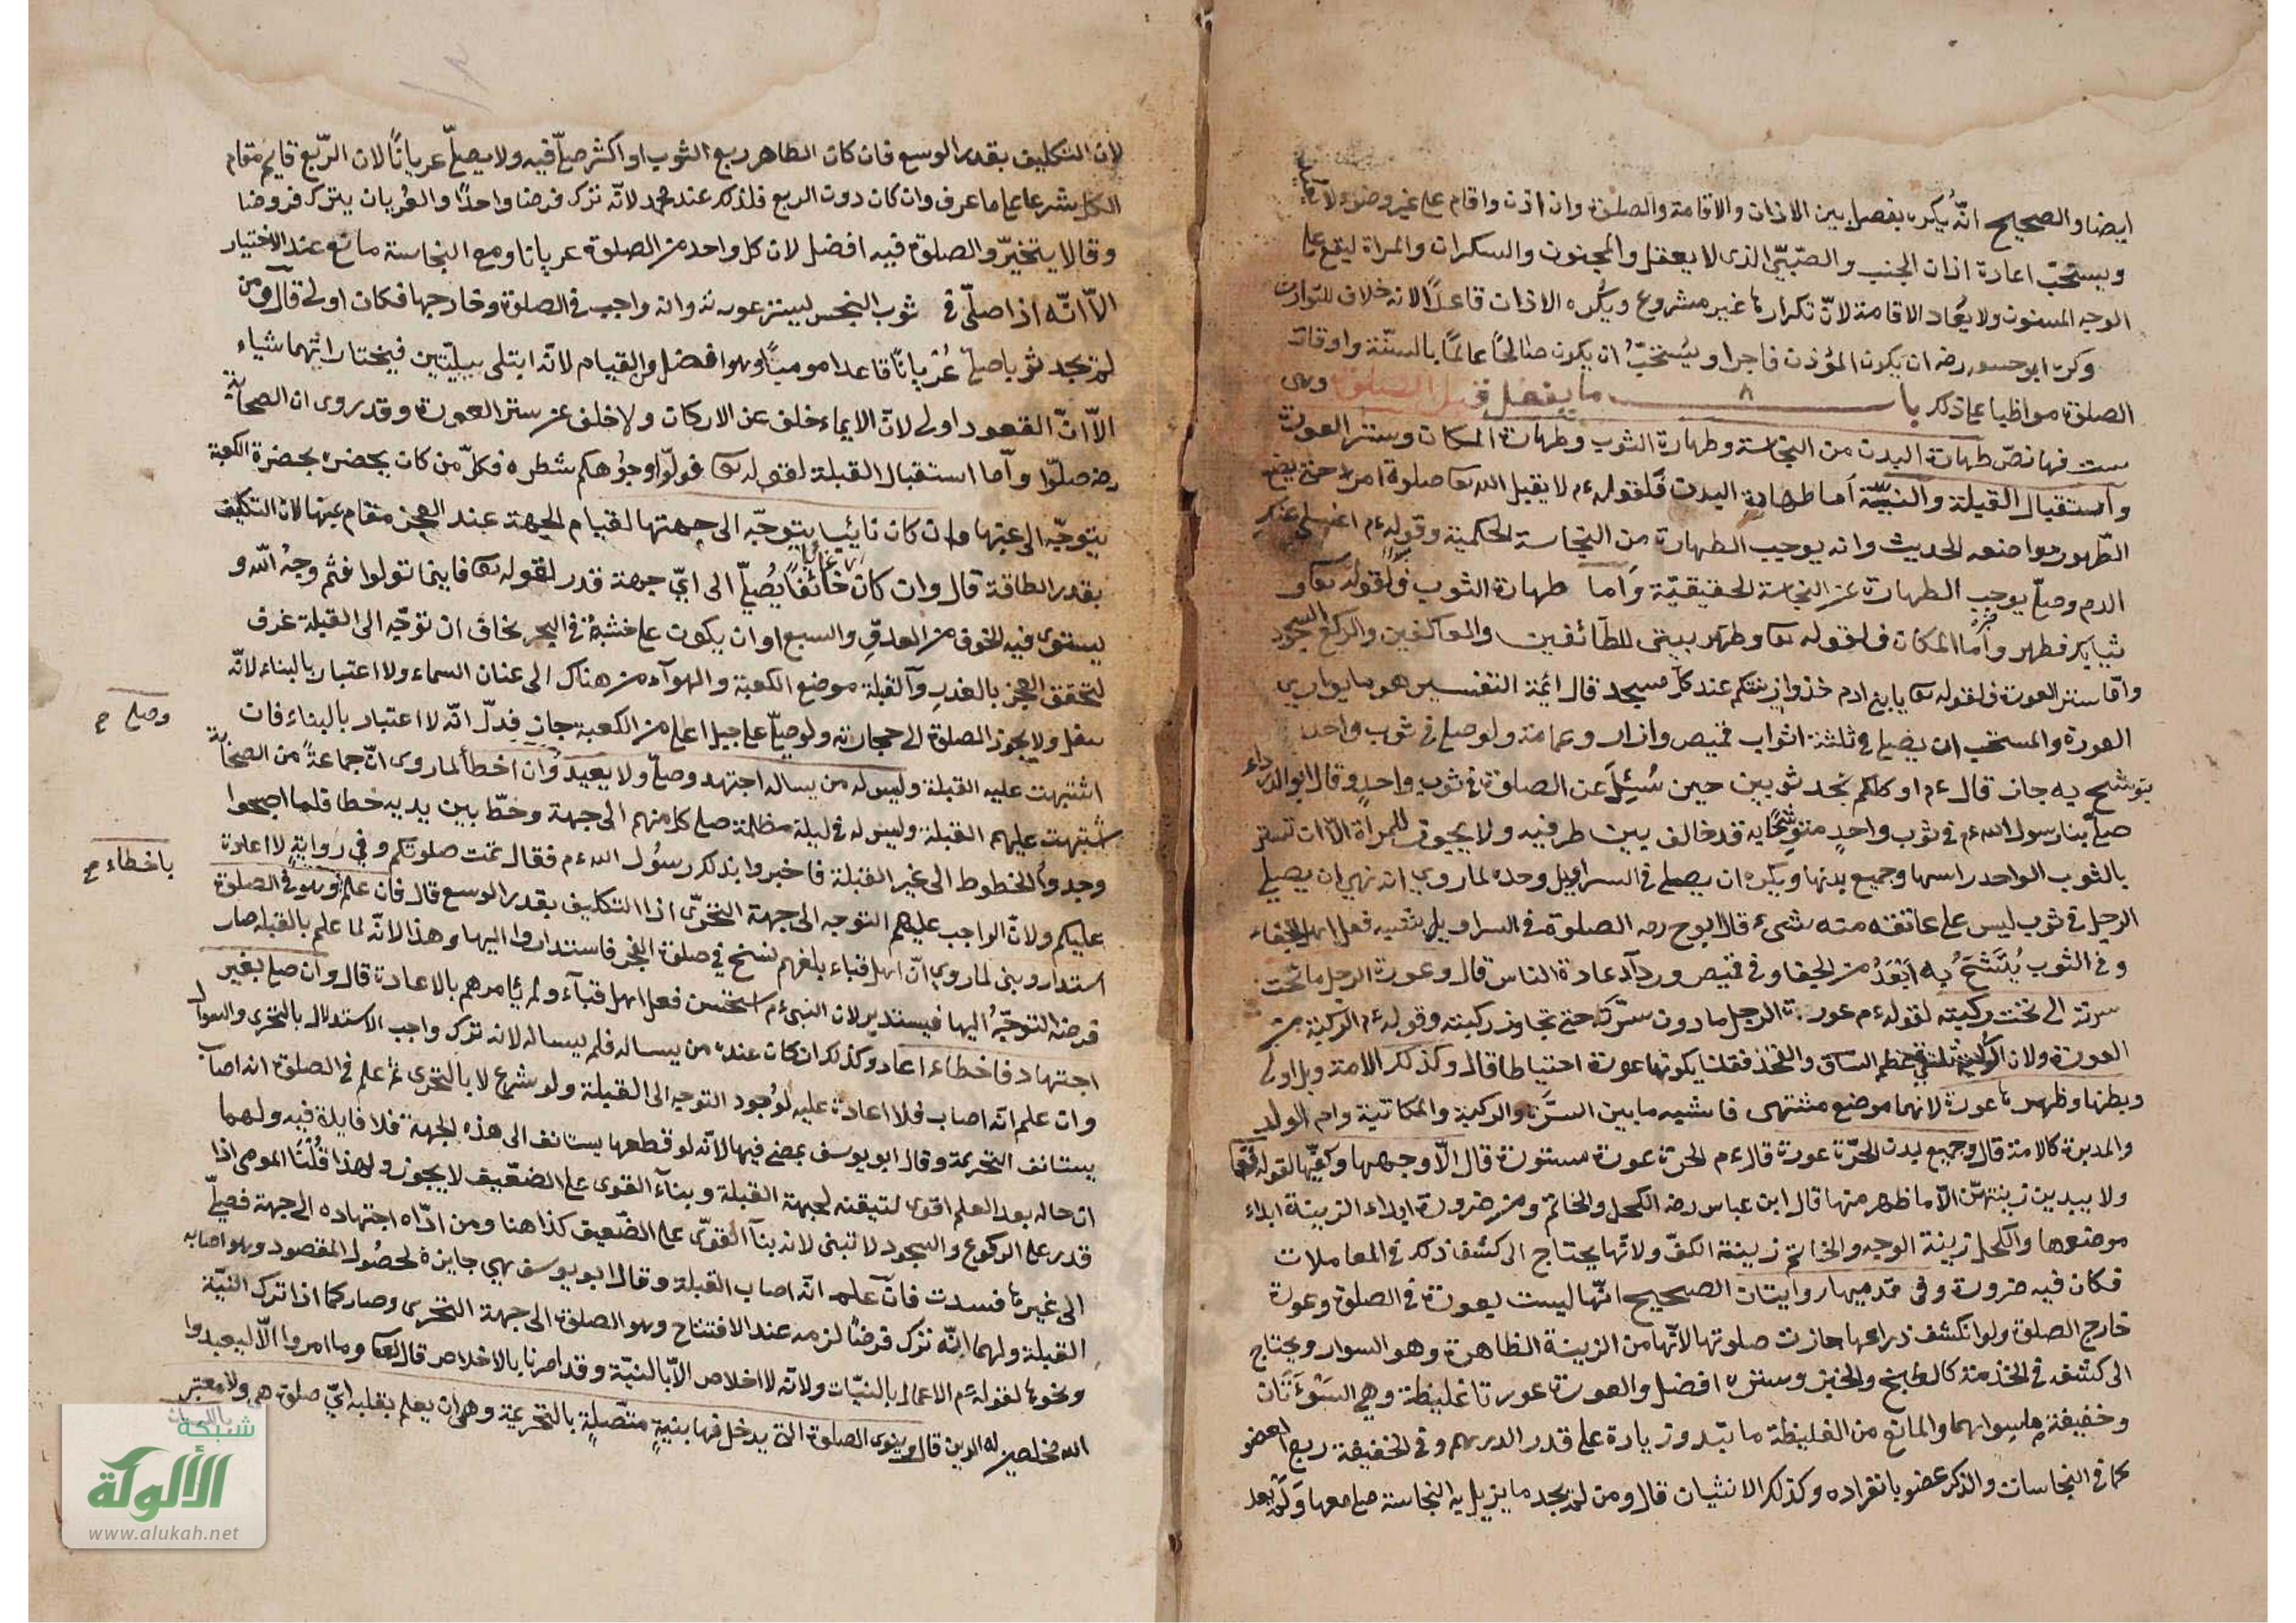 ايضا والصحيح انّه يكره يفصل بين الاذان والاقامة والصلوة وان اذن واقام على غير وضوء لا يعيد
ويستحبّ اعادة اذان الجنب والصّبيّ الذى لا يعقل والمجنون والسكران والمراة ليقع على
الوجه المسنون ولا يعاد الاقامة لانّ تكرارها غير مشروع ويكره الاذان قاعدًا لانه خلاف المتوارث
وكره ابو حنيفة رضه ان يكون المؤذن فاجرا ويستحبّ ان يكون صالحًا عالمًا بالسنّة واوقات
الصلوة مواظبا على ذلك باب ما يفعل قبل الصلوة وهى
ست فيها نصّ طهارة البدن من النجاسة وطهارة الثوب وطهارة المكان وستر العورة
واستقبال القبلة والنيّة أما طهارة البدن فلقوله ءم لا يقبل الله تعا صلوة امرء حتى يضع
الطّهور مواضعه الحديث وانه يوجب الطهارة من النجاسة الحكمية وقوله ءم اغسلى عنك
الدم وصلّى يوجب الطهارة عن النجاسة الحقيقيّة وأما طهارة الثوب فلقوله تعا و
ثيابك فطهر وأما المكان فلقوله تعا وطهر بيتى للطائفين والعاكفين والركع السجود
وامّا ستر العورة فلقوله تعا يا بنى ادم خذوا زينتكم عند كلّ مسجد قال ائمة التفسير هو ما يوارى
العورة والمستحب ان يصلى فى ثلثة اثواب قميص وازار وعمامة ولو صلى فى ثوب واحد
يتوشح به جاز قال ءم او كلكم يجد ثوبين حين سُئِلَ عن الصلوة فى ثوب واحدٍ وقال ابو الدرداء
صلّى بنا رسول الله ءم فى ثوب واحدٍ متوشّحًا به قد خالف بين طرفيه ولا يجوز للمراة الّا ان تستر
بالثوب الواحد راسها وجميع بدنها ويكره ان يصلى فى السراويل وحده لما روى انه نهى ان يصلى
الرجل فى ثوب ليس على عاتقه منه شىء قال ابو ح رحه الصلوة فى السراويل يشبه فعل اهل الجفاء
وفى الثوب يُتَشَّحُ به أبعَدُ من الجفا وفى قميص وردآء عادة الناس قال وعورة الرجل ما تحت
سرته الى تحت ركبته لقوله ءم عورة الرجل ما دون سرّته حتى تجاوز ركبته وقوله ءم الركبة من
العورة ولان الركبة ملتقى عظم الساق والفخذ فقلنا بكونها عورة احتياطا قال وكذلك الامة وبل اولى
وبطنها وظهرها عورة لانهما موضع مشتهى فاشبه ما بين السرّة والركبة والمكاتبة وام الولد
والمدبرة كالامة قال وجميع بدن الحرّة عورة قال ءم الحرة عورة مستورة قال الّا وجهها وكفيّها لقوله تعا
ولا يبدين زينتهنّ الّا ما ظهر منها قال ابن عباس رضه الكحل والخاتم ومن ضرورة ابداء الزينة ابداء
موضعها والكحل زينة الوجه والخاتم زينة الكفّ ولانّها يحتاج الى كشف ذلك فى المعاملات
فكان فيه ضرورة وفى قدميها روايتان الصحيح انّها ليست بعورة فى الصلوة وعورة
خارج الصلوة ولو انكشف ذراعها جازت صلوتها لانّها من الزينة الظاهرة وهو السوار ويحتاج
الى كشفه فى الخدمة كالطبخ والخبز وستره افضل والعورة عورتا غليظة وهى السَوْءَتَان
وخفيفة ما سواهما والمانع من الغليظة ما تبدو زيادة على قدر الدرهم وفى الخفيفة ربع العضو
كما فى النجاسات والذكر عضو بانفراده وكذلك الانثيان قال ومن لم يجد ما يزيل به النجاسة صلى معها ولم يعد
لان التكليف بقدر الوسع فان كان الطاهر ربع الثوب او اكثر صلّى فيه ولا يصلّى عريانًا لان الرّبع قايم مقام
الكل شرعا على ما عرف وان كان دون الربع فلذلك عند محمد لانّه ترك فرضا واحدًا والعُريان يترك فروضا
وقالا يتخيّر والصلوة فيه افضل لان كل واحد من الصلوة عريانا ومع النجاسة مانع عند الاختيار
الاّ انّه اذا صلّى فى ثوب النجس ليستر عورته وانه واجب فى الصلوة وخارجها فكان اولى قال ومن
لم يجد ثوبا صلّى عُرْيانًا قاعدا موميًا وهو افضل من القيام لانّه ابتلى ببليّتين فيختار ايّهما شاء
الاّ انّ القعود اولى لانّ الايماء خلف عن الاركان ولا خلف عن ستر العورة وقد روى ان الصحابة
رضه صلّوا وأما استقبال القبلة لقوله تعا فولّوا وجوهكم شطره فكلّ من كان بحضره بحضرة الكعبة
يتوجّه الى عينها وان كان نائيا يتوجّه الى جهتها لقيام الجهة عند العجز مقام عينها لان التكليف
بقدر الطاقة قال وان كان خائفًا يُصلّى الى ايّ جهة قدر لقوله تعا فاينما تولوا فثم وجه الله و
يستوى فيه الخوف من العدوّ والسبع او ان يكون على خشبة فى البحر يخاف ان توجّه الى القبلة غرق
لتحقق العجز بالعذر وآلقبلة موضع الكعبة والهوآء من هناك الى عنان السماء ولا اعتبار بالبناء لانّه
ينقل ولا يجوز الصلوة الى حجارته ولو صلّى على جبل اعلى من الكعبة جاز فدلّ انّه لا اعتبار بالبناء فان
وصلى صح
اشتبهت عليه القبلة وليس له من يساله اجتهد وصلّى ولا يعيد وان اخطأ لما روى انّ جماعةً من الصحابة
اشتبهت عليهم القبلة وليس له فى ليلة مظلمة صلى كل منهم الى جهة وخطّ بين يديه خطا فلما اصبحوا
وجدوا الخطوط الى غير القبلة فاخبروا بذلك رسُول الله ءم فقال تمت صلوتكم وفى رواية لا اعادة
باخطاء صح
عليكم ولانّ الواجب عليهم التوجه الى جهة التحرّى اذا التكليف بقدر الوسع قال فان علم وهو فى الصلوة
استدار وبنى لما روى انّ اهل قباء بلغهم نسخ فى صلوة الفجر فاستداروا اليها وهذا لانّه لما علم بالقبله صار
فرضه التوجّه اليها فيستدير لان النبى ءم استحسن فعل اهل قبآء ولم يامرهم بالاعادة قال وان صلى بغير
اجتهاد فاخطاء اعاد وكذلك ان كان عنده من يساله فلم يساله لانه ترك واجب الاستدلال بالتحرى والسوال
وان علم انه اصاب فلا اعادة عليه لوُجود التوجه الى القبلة ولو شرع لا بالتحرى ثم علم فى الصلوة انه اصاب
يستانف التحريمة وقال ابو يوسف يمضى فيها لانّه لو قطعها يستانف الى هذه الجهة فلا فايدة فيه ولهما
ان حاله بعد العلم اقوى لتيقنه لجهة القبلة وبنآء القوى على الضعيف لا يجوز ولهذا قُلنا المومى اذا
قدر على الركوع والسجود لا تبنى لانه بنآ القوّى على الضّعيف كذا هنا ومن ادّاه اجتهاده الى جهة فصلّى
الى غيرها فسدت فان علم انّه اصاب القبلة وقال ابو يوسف هى جايزة لحصُول المقصود وهو اصابه
القبلة ولهما انّه ترك فرضًا لزمه عند الافتتاح وهو الصلوة الى جهة التحرى وصار كما اذا ترك النيّة
ونحوها لقوله ءم الاعمال بالنيّات ولانّه لا اخلاص الاّ بالنيّة وقد امرنا بالاخلاص قال تعا وما امروا الاّ ليعبدوا
الله مخلصين له الدين قال وينوى الصلوة التى يدخل فيها بنيةٍ متّصلةٍ بالتحريمة وهى ان يعلم بقلبه ايّ صلوة هى ولا معتبر
باللسان
شبكة
الألوكة
www.alukah.net